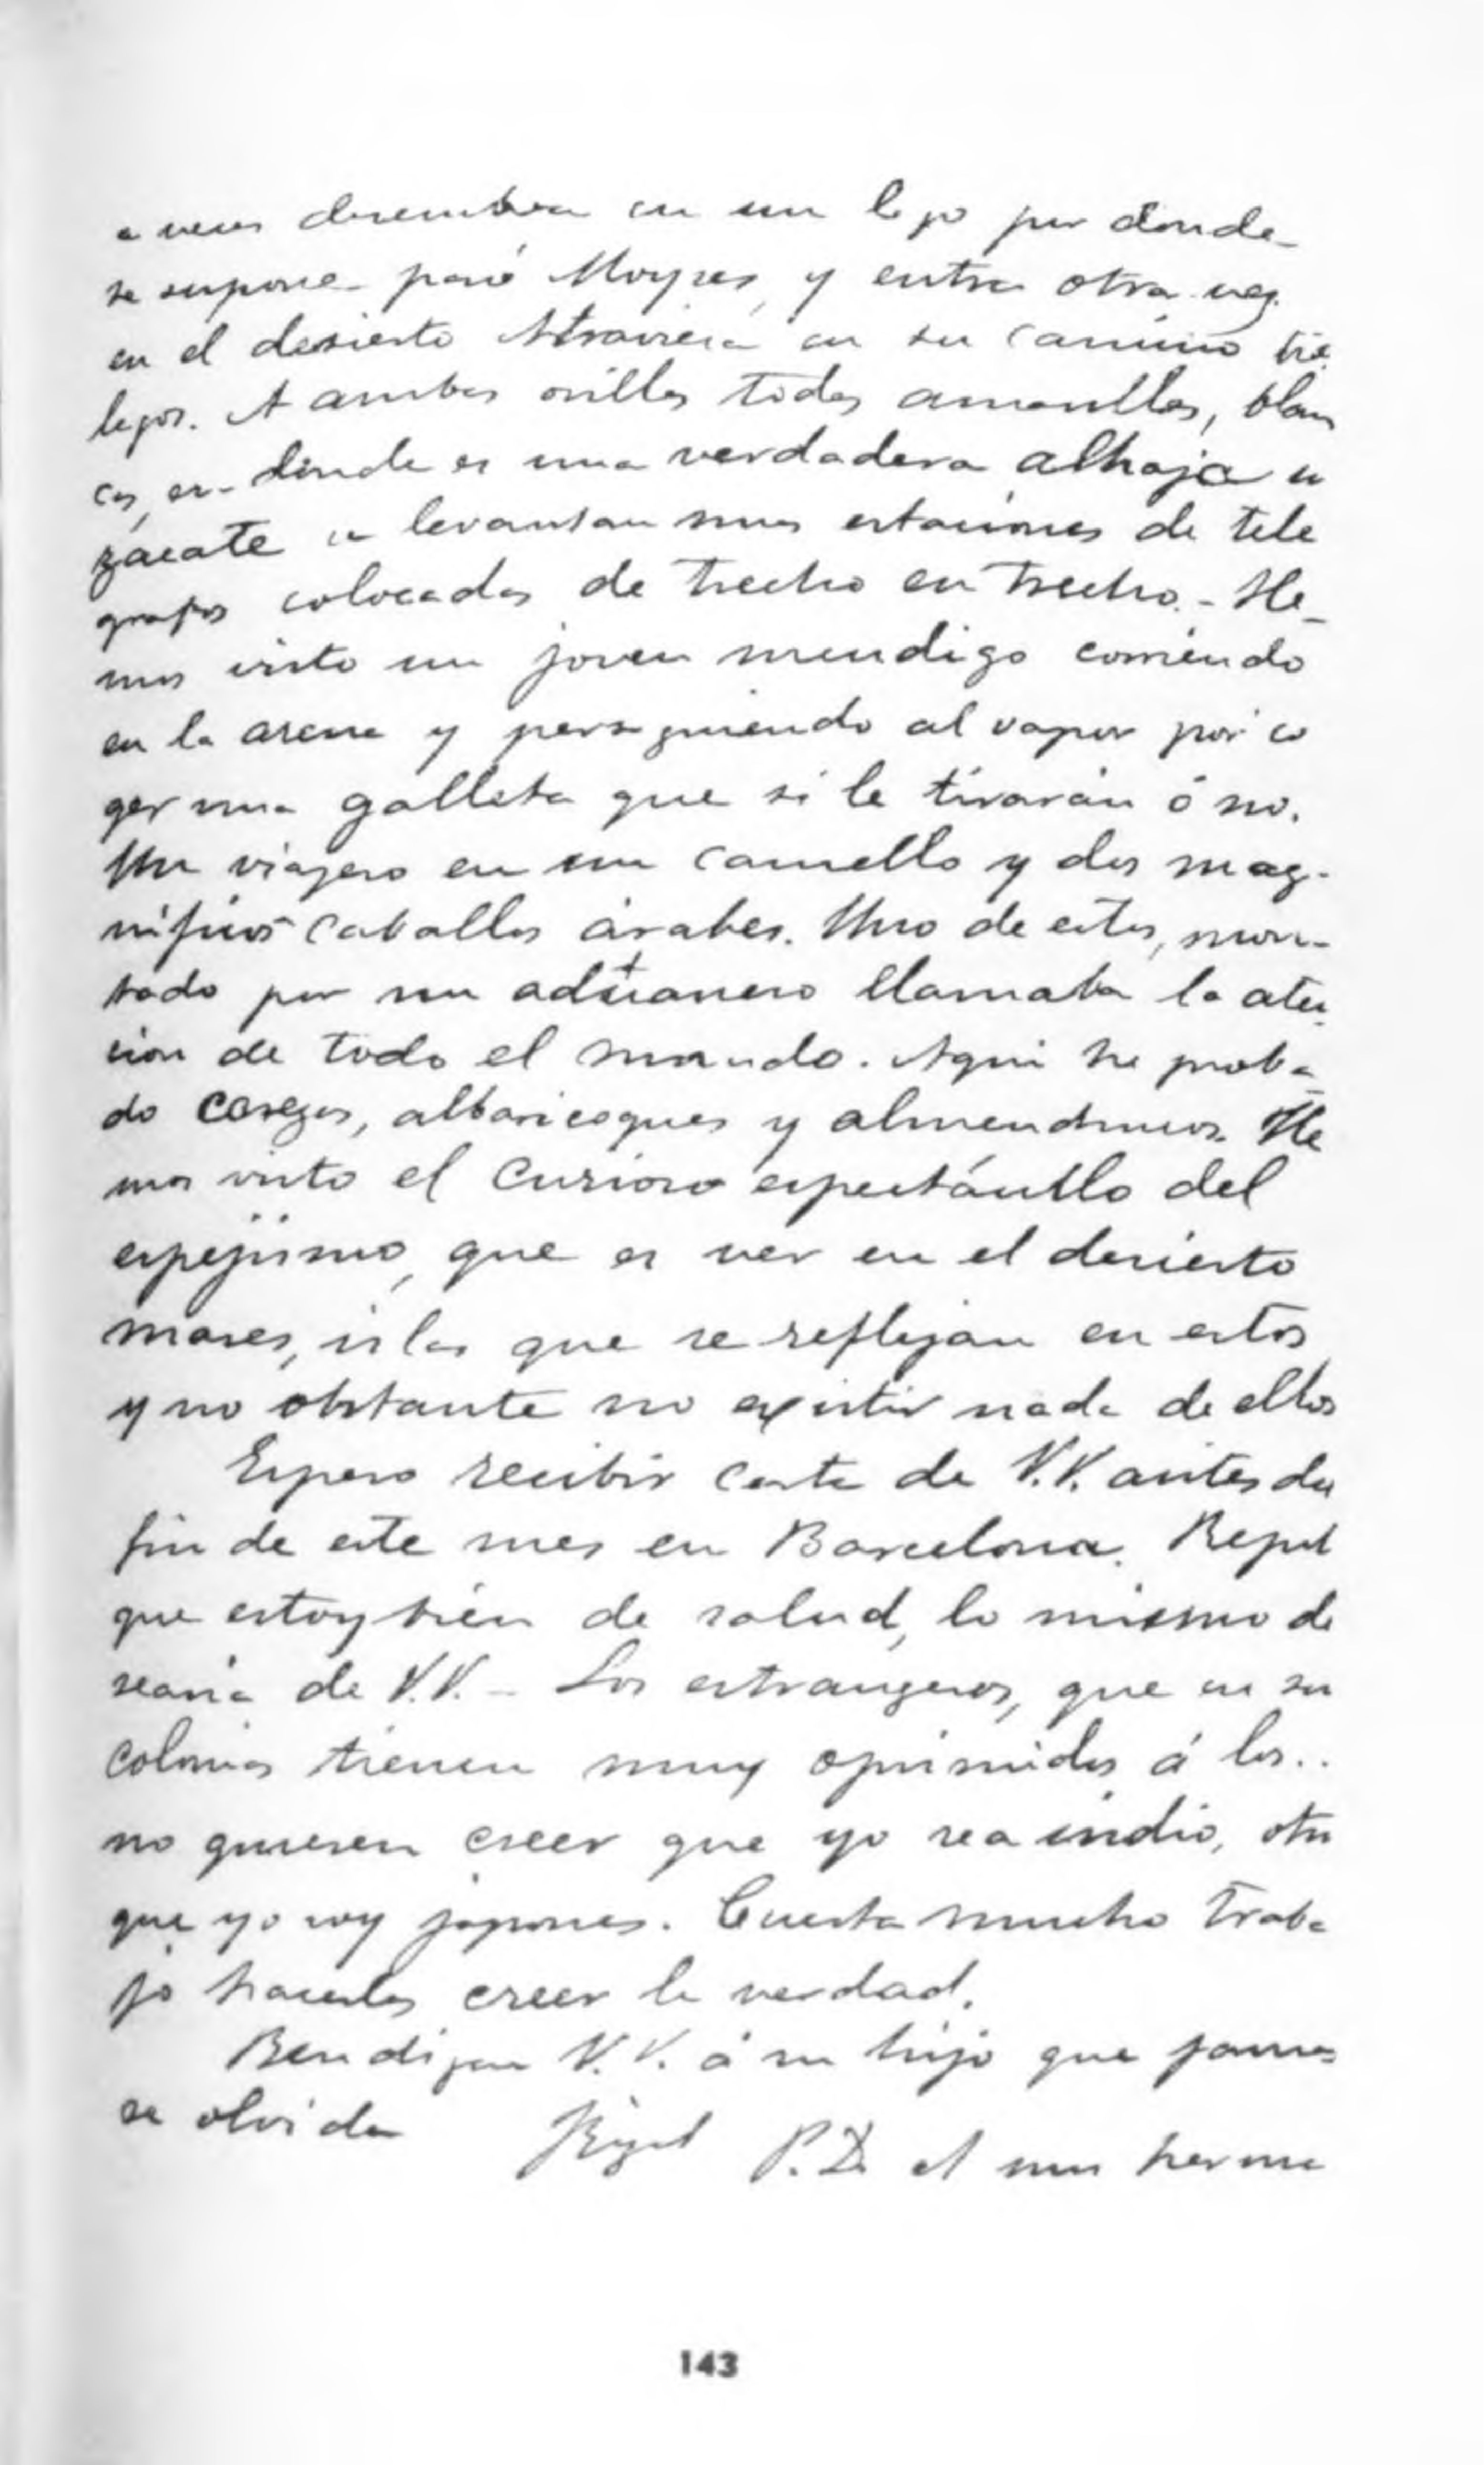 a veces desemboca en un lago por donde
se supone pasó Moyses, y entra otra vez
en el desierto Atraviesa en su camino tre
lagos. A ambas orillas todas amarillas, blan
cas, en donde es una verdadera alhaja u
zacate se levantan unas estaciones de tele
grafos colocadas de trecho en trecho. - He_
mos visto un joven mendigo corriendo
en la arena y persiguiendo al vapor por co
ger una galleta que si le tirarán ó no.
Un viajero en un camello y dos mag-
níficos caballos árabes. Uno de estos, mon-
tado por un aduanero llamaba la aten
cion de todo el mundo. Aqui he proba_
do cerezas, albaricoques y almendrucos. He
mos visto el curioso espectáculo del
espejismo, que es ver en el desierto
mares, islas que se reflejan en estos
y no obstante no existir nada de ellos
Espero recibir carta de V.V. antes del
fin de este mes en Barcelona. Repit
que estoy bien de salud, lo mismo de
searía de V.V. - Los estrangeros, que en su
colonias tienen muy oprimidos á los..
no quieren creer que yo sea indio, otr
que yo soy japones. Cuesta mucho traba
jo hacerles creer la verdad.
Bendigan V.V. á su hijo que jamas
se olvida Rizal P.D. á mis herma
143